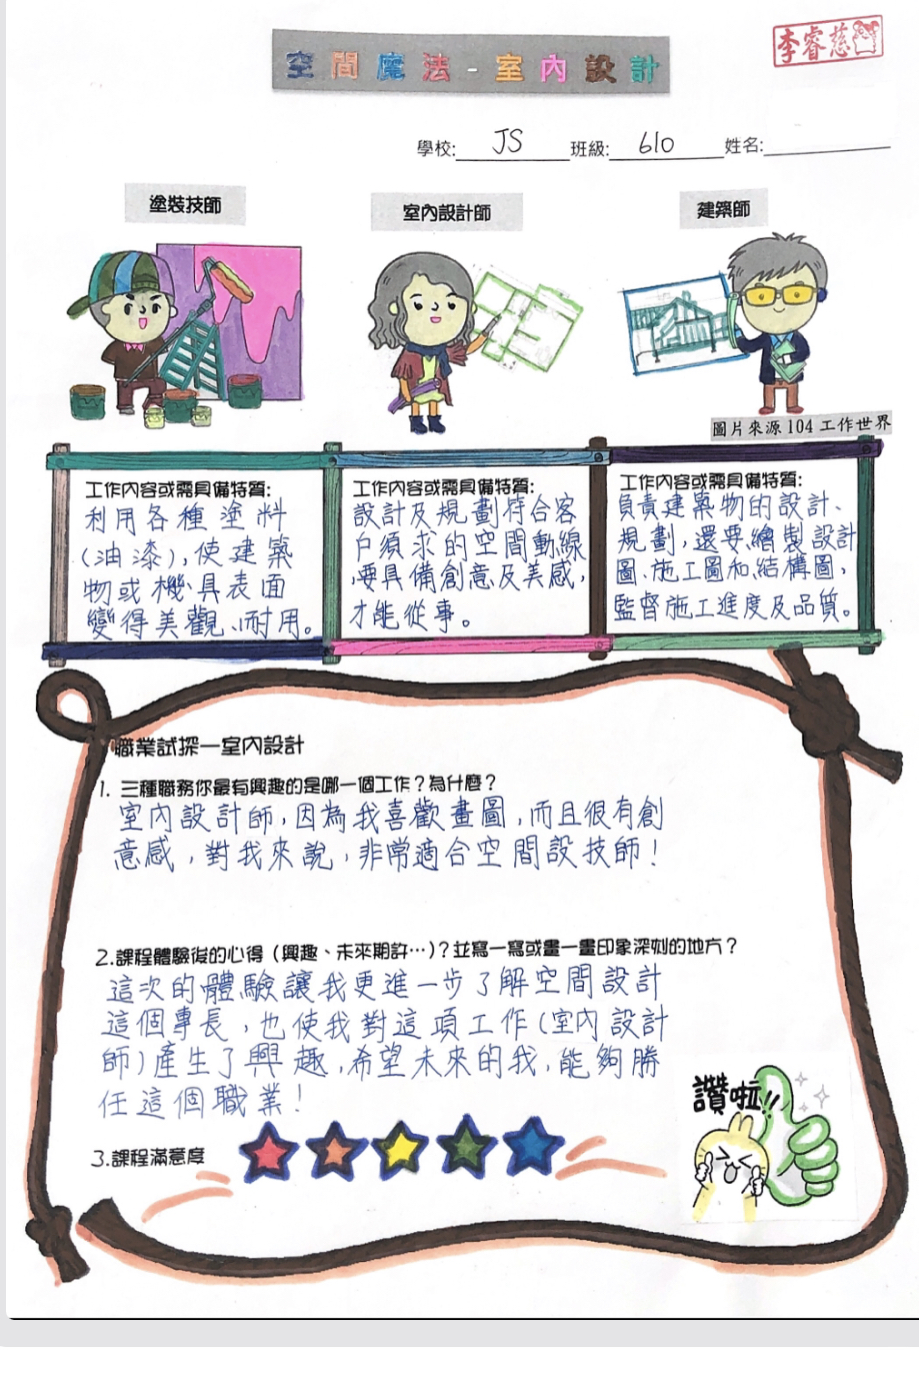 空間魔法-室內設計
李睿慈
學校: JS 班級: 610 姓名:
塗裝技師
室內設計師
建築師
圖片來源 104 工作世界
工作內容或需具備特質:
利用各種塗料
(油漆),使建築
物或機具表面
變得美觀、耐用。
工作內容或需具備特質:
設計及規劃符合客
戶須求的空間動線
,要具備創意及美感,
才能從事。
工作內容或需具備特質:
負責建築物的設計、
規劃,還要繪製設計
圖、施工圖和結構圖,
監督施工進度及品質。
職業試探—室內設計
1. 三種職務你最有興趣的是哪一個工作?為什麼?
室內設計師,因為我喜歡畫圖,而且很有創
意感,對我來說,非常適合空間設技師!
2.課程體驗後的心得(興趣、未來期許…)?並寫一寫或畫一畫印象深刻的地方?
這次的體驗讓我更進一步了解空間設計
這個專長,也使我對這項工作(室內設計
師)產生了興趣,希望未來的我,能夠勝
任這個職業!
讚啦!!
3.課程滿意度